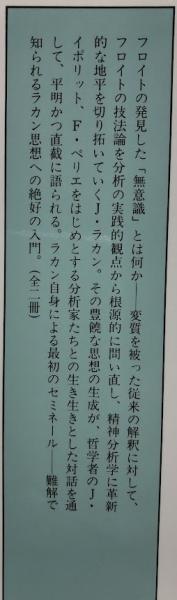 フロイトの発見した「無意識」とは何か――変質を被った従来の解釈に対して、
フロイトの技法論を分析の実践的観点から根源的に問い直し、精神分析学に革新
的な地平を切り拓いていくJ・ラカン。その豊饒な思想の生成が、哲学者のJ・
イポリット、F・ペリエをはじめとする分析家たちとの生き生きとした対話を通
して、平明かつ直截に語られる。ラカン自身による最初のセミネール――難解で
知られるラカン思想への絶好の入門。（全二冊）